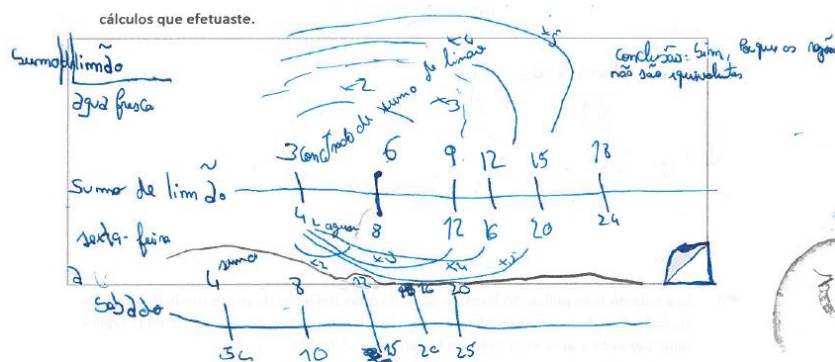 cálculos que efetuaste.
Sumo de limão
água fresca
Conclusão: Sim, porque os
não são equivalentes
x4
x2
x3
concentrado de sumo de limão
3 6 9 12 15 18
Sumo de limão
4 8 12 16 20 24
L água
sexta-feira
x2 x3 x4 x5
sumo
4 8 12 16 20
Sabado
5 10 15 20 25